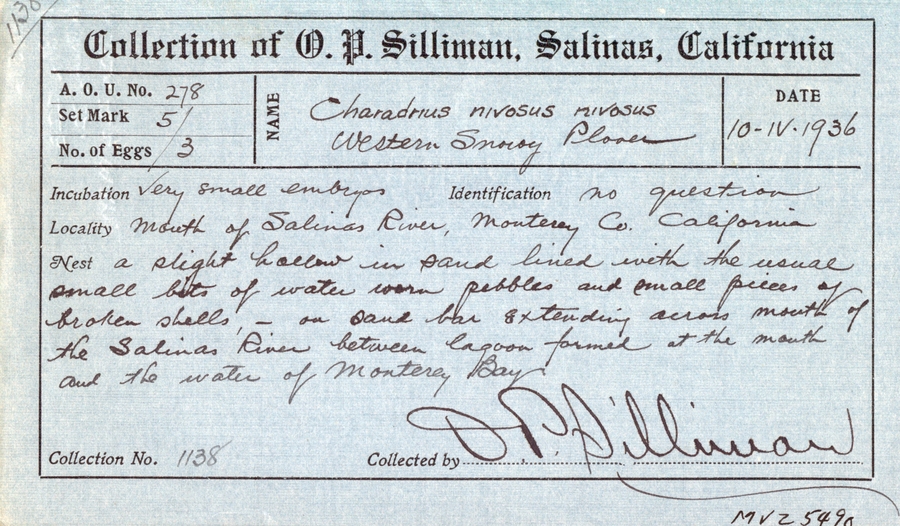 1138
Collection of O. P. Silliman, Salinas, California
A. O. U. No. 278
Set Mark 5/
No. of Eggs /3
NAME
Charadrius nivosus nivosus
Western Snowy Plover
DATE
10-IV-1936
Incubation Very small embryos Identification no question
Locality Mouth of Salinas River, Monterey Co. California
Nest a slight hollow in sand lined with the usual
small bits of water worn pebbles and small pieces of
broken shells, - on sand bar extending across mouth of
the Salinas River between lagoon formed at the mouth
and the water of Monterey Bay
Collection No. 1138 Collected by O. P. Silliman
MVZ